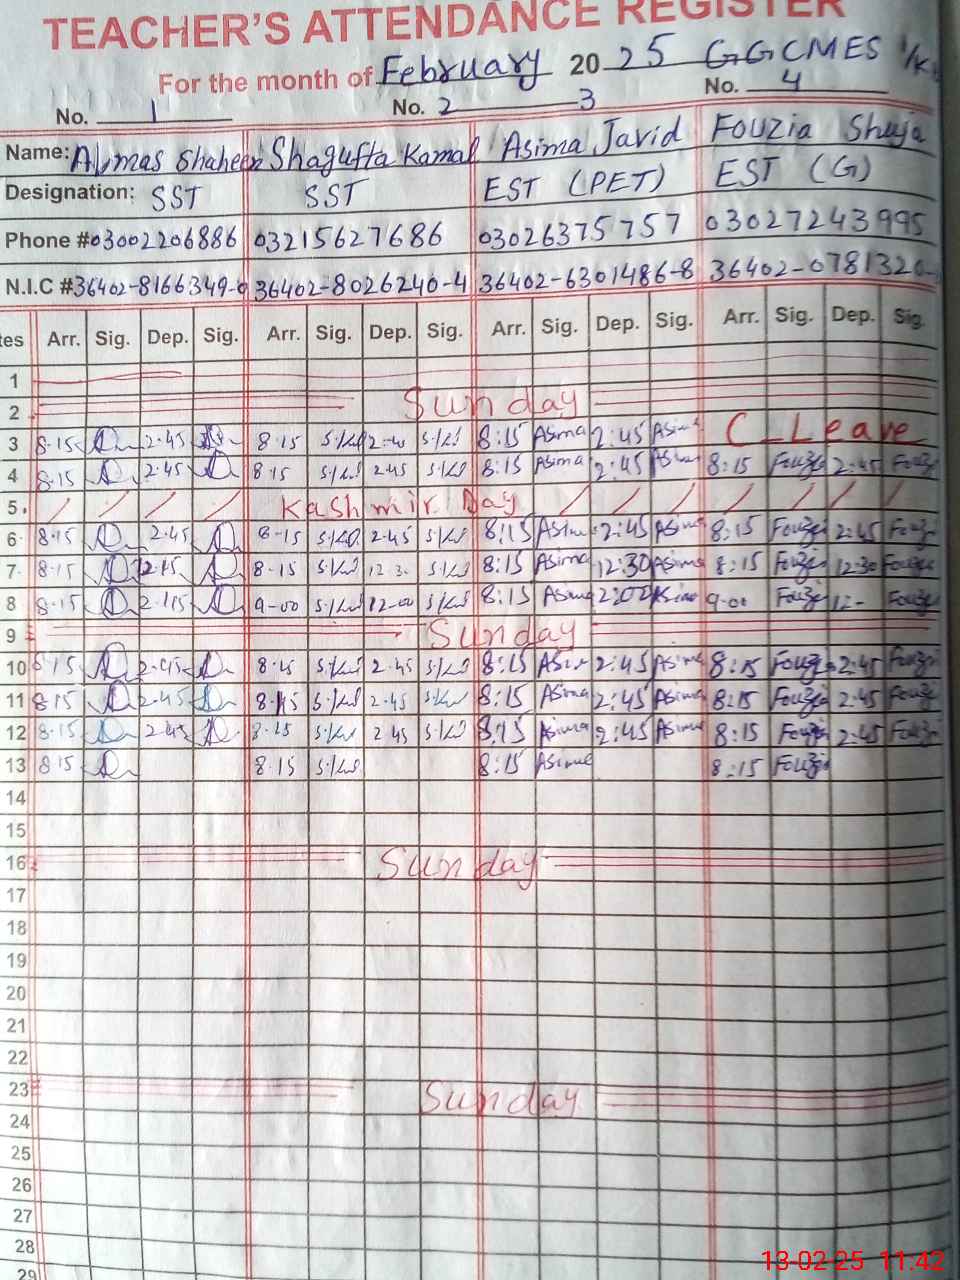 TEACHER'S ATTENDANCE REGISTER
For the month of February 2025 GGCMES
No. 1 No. 2 3 No. 4
Name: Almas Shaheen Shagufta Kamal Asima Javid Fouzia Shuja
Designation: SST SST EST (PET) EST (G)
Phone #03002206886 03215627686 03026375757 03027243995
N.I.C #36402-8166349-0 36402-8026240-4 36402-6301486-8 36402-0781320-
tes Arr. Sig. Dep. Sig. Arr. Sig. Dep. Sig. Arr. Sig. Dep. Sig. Arr. Sig. Dep. Sig.
1
2 Sunday
3 8.15 2.45 8.15 S.Kl 8:15 Asima 2:45 Asima C_Leave
4 8.15 2.45 8.15 S.Kl 2.45 S.Kl 8:15 Asima 2:45 8:15 Fouzi 2:45 Fouzi
5. Kashmir Day
6 8.15 2.45 8-15 2.45 S.Kl 8:15 Asima 2:45 Asima 8:15 Fouzi 2:45 Fouzi
7 8.15 8.15 S.Kl 12.30 S.Kl 8:15 Asima 12:30 Asima 8:15 Fouzi 12:30 Fouzi
8 8.15 9-00 S.Kl 12-00 S.Kl 8:15 Asima 2:00 9-00 Fouzi 12- Fouzi
9 Sunday
10 2.45 S.Kl 2.45 S.Kl 8:15 2:45 Asima 8:15 Fouzi 2:45 Fouzi
11 8.15 2.45 8.15 S.Kl 2.45 S.Kl 8:15 Asima 2:45 Asima 8:15 Fouzi 2.45 Fouzi
12 8.15 2.45 8.15 S.Kl 2.45 S.Kl 8:15 Asima 2:45 Asima 8:15 Fouzi 2:45 Fouzi
13 8.15 8.15 S.Kl 8:15 Asima 8:15 Fouzi
14
15
16 Sunday
17
18
19
20
21
22
23 Sunday
24
25
26
27
28
29
13-02-25 11:42